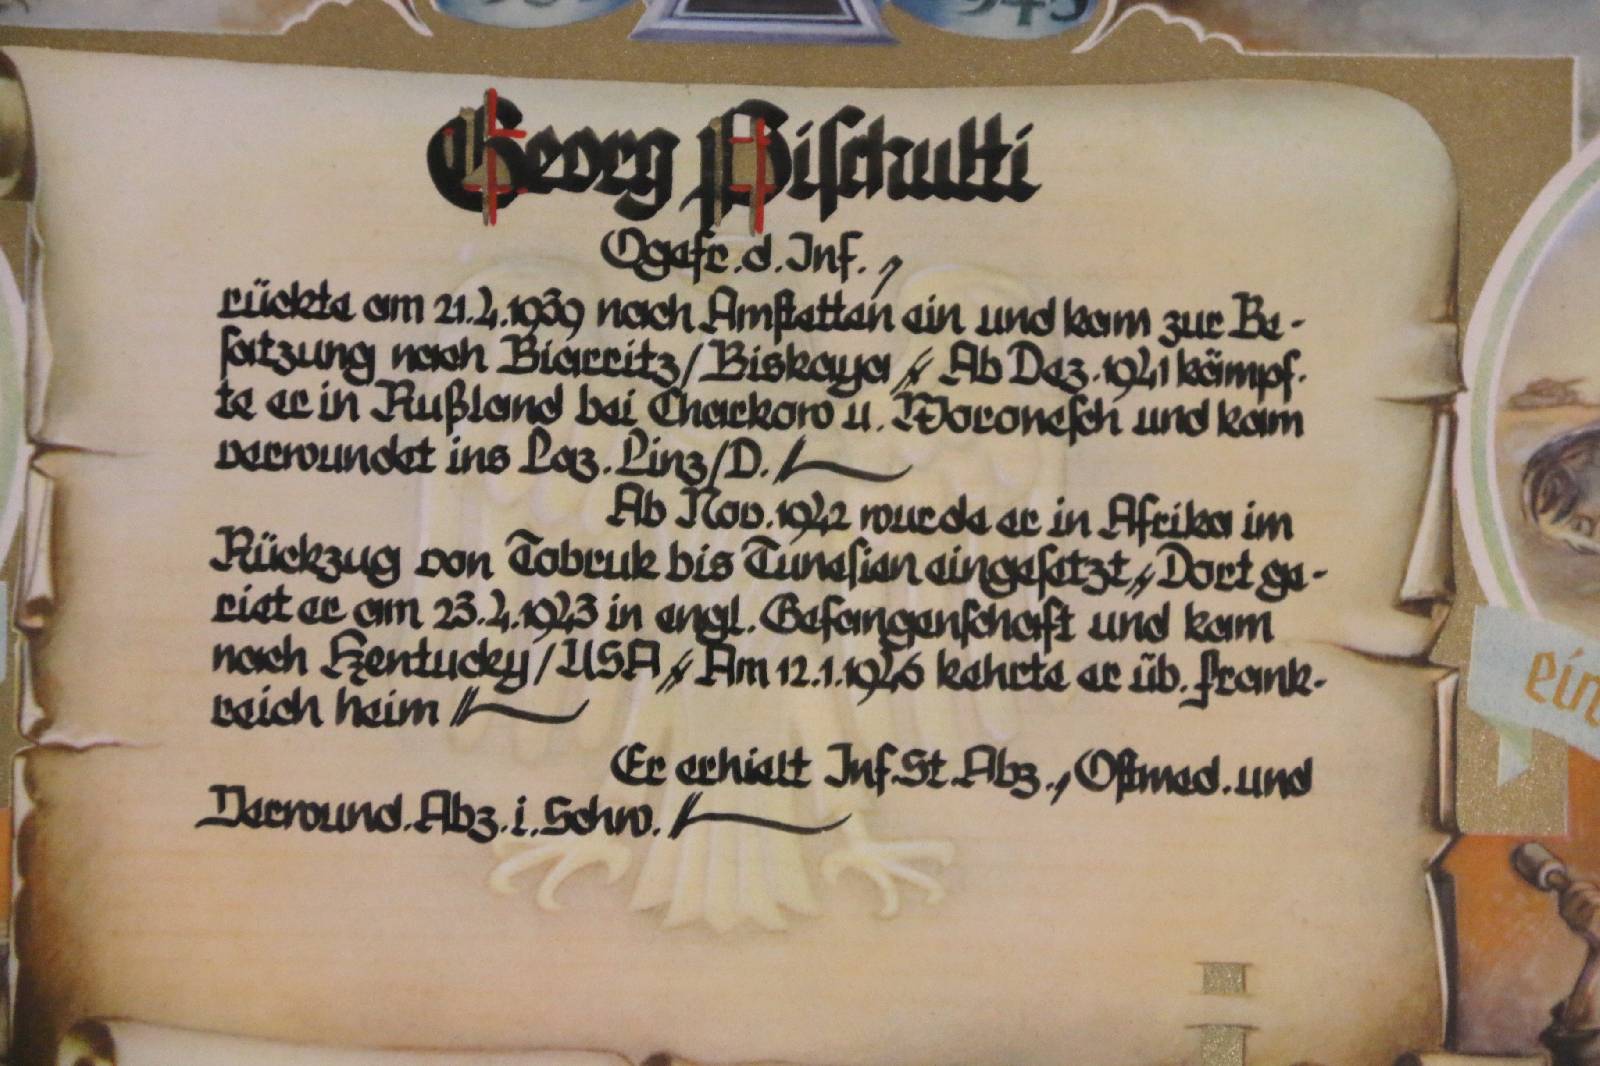 Georg Pischulti
Ogefr. d. Inf.,
rückte am 21.4.1939 nach Amstetten ein und kam zur Be-
satzung nach Biarritz/Biskaya // Ab Dez. 1941 kämpf-
te er in Rußland bei Charkow u. Woronesch und kam
verwundet ins Laz. Linz/D.
Ab Nov. 1942 wurde er in Afrika im
Rückzug von Tobruk bis Tunesien eingesetzt // Dort ge-
riet er am 23.4.1943 in engl. Gefangenschaft und kam
nach Kentucky/USA // Am 12.1.1946 kehrte er üb. Frank-
reich heim //
Er erhielt Inf.St.Abz., Ostmed. und
Verwund.Abz. i. Schw.
ein